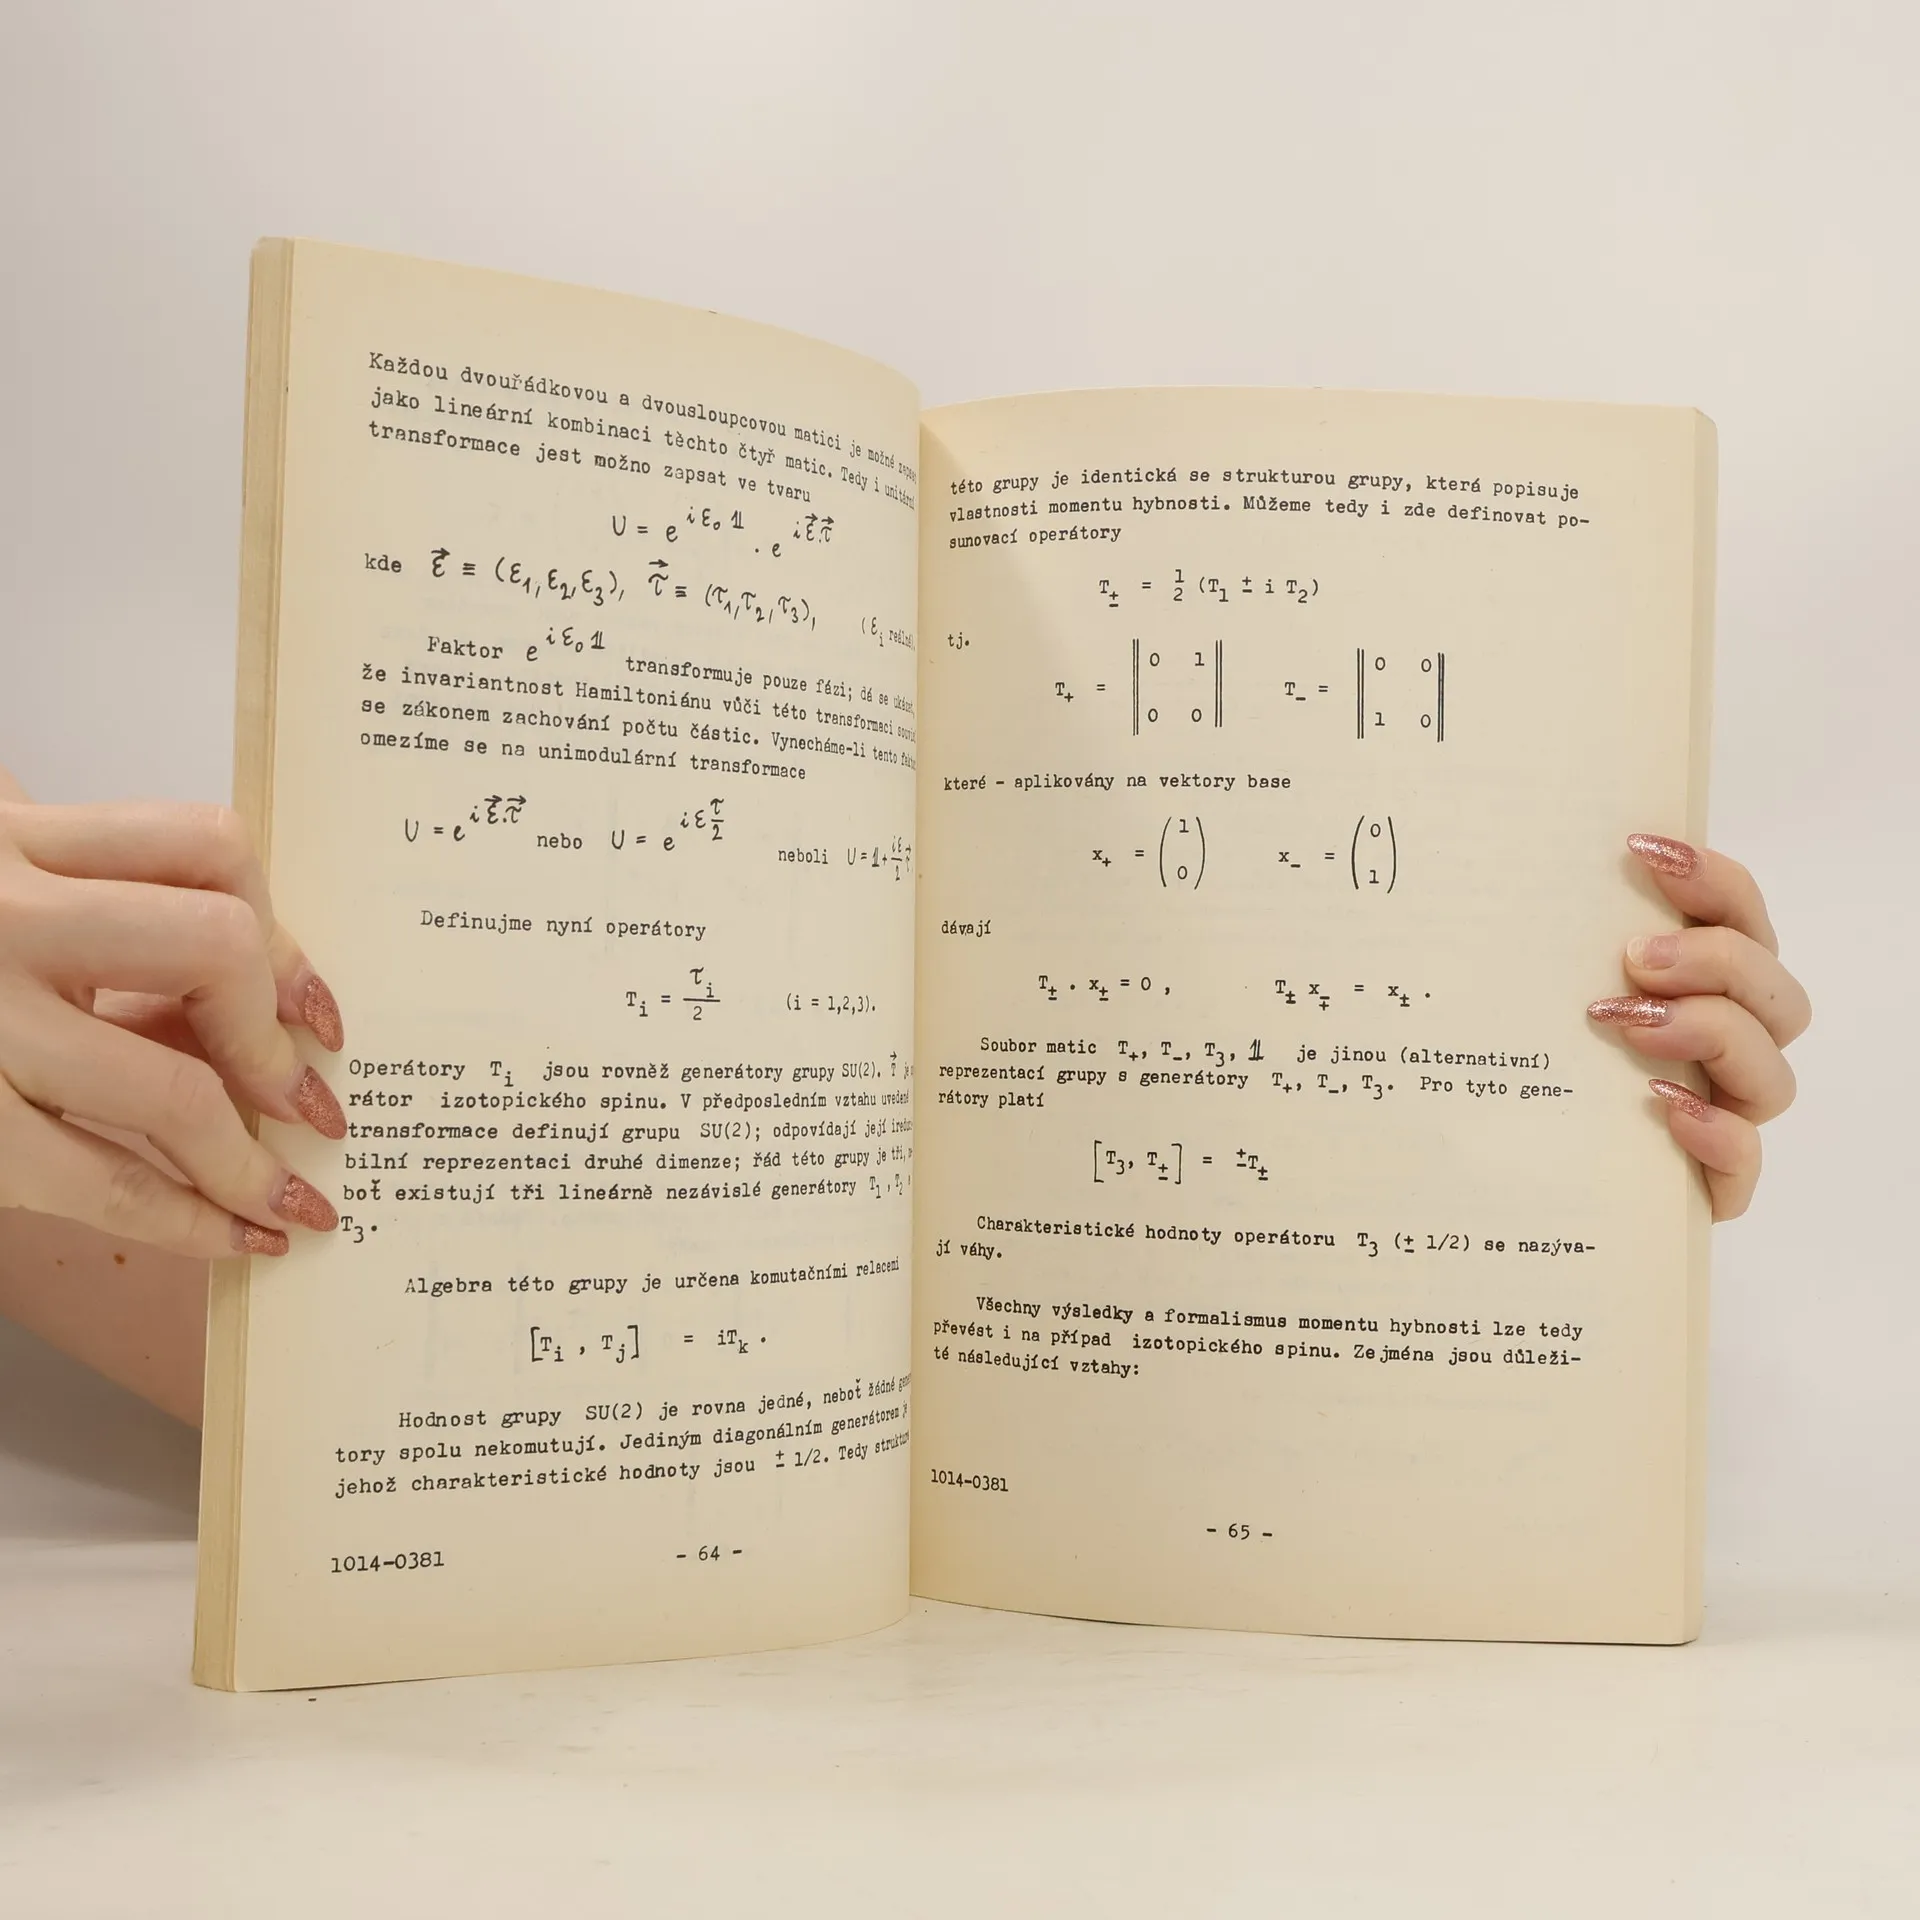 Každou dvouřádkovou a dvousloupcovou matici je možné
jako lineární kombinaci těchto čtyř matic. Tedy i
transformace jest možno zapsat ve tvaru
U = e^{iε₀𝟙} . e^{iε⃗.τ⃗}
kde ε⃗ ≡ (ε₁,ε₂,ε₃), τ⃗ ≡ (τ₁,τ₂,τ₃), (εᵢ reálné).
Faktor e^{iε₀𝟙} transformuje pouze fázi; dá se
že invariantnost Hamiltoniánu vůči této transformaci
se zákonem zachování počtu částic. Vynecháme-li tento
omezíme se na unimodulární transformace
U = e^{iε⃗.τ⃗} nebo U = e^{iε τ/2} neboli U = 𝟙 + iε⃗/2 τ⃗
Definujme nyní operátory
Tᵢ = τᵢ/2 (i = 1,2,3).
Operátory Tᵢ jsou rovněž generátory grupy SU(2). T⃗
rátor izotopického spinu. V předposledním vztahu uvedené
transformace definují grupu SU(2); odpovídají její
bilní reprezentaci druhé dimenze; řád této grupy je tři,
boť existují tři lineárně nezávislé generátory T₁, T₂,
T₃.
Algebra této grupy je určena komutačními relacemi
[Tᵢ , Tⱼ] = iTₖ .
Hodnost grupy SU(2) je rovna jedné, neboť žádné
tory spolu nekomutují. Jediným diagonálním generátorem je
jehož charakteristické hodnoty jsou ± 1/2. Tedy
1014-0381
- 64 -
této grupy je identická se strukturou grupy, která popisuje
vlastnosti momentu hybnosti. Můžeme tedy i zde definovat po-
sunovací operátory
T± = 1/2 (T₁ ± i T₂)
tj.
T₊ = ‖ 0 1 ‖ T₋ = ‖ 0 0 ‖
‖ 0 0 ‖ ‖ 1 0 ‖
které - aplikovány na vektory base
x₊ = ( 1 ) x₋ = ( 0 )
( 0 ) ( 1 )
dávají
T± . x± = 0 , T± x∓ = x± .
Soubor matic T₊, T₋, T₃, 𝟙 je jinou (alternativní)
reprezentací grupy s generátory T₊, T₋, T₃. Pro tyto gene-
rátory platí
[T₃, T±] = ±T±
Charakteristické hodnoty operátoru T₃ (± 1/2) se nazýva-
jí váhy.
Všechny výsledky a formalismus momentu hybnosti lze tedy
převést i na případ izotopického spinu. Zejména jsou důleži-
té následující vztahy:
1014-0381
- 65 -